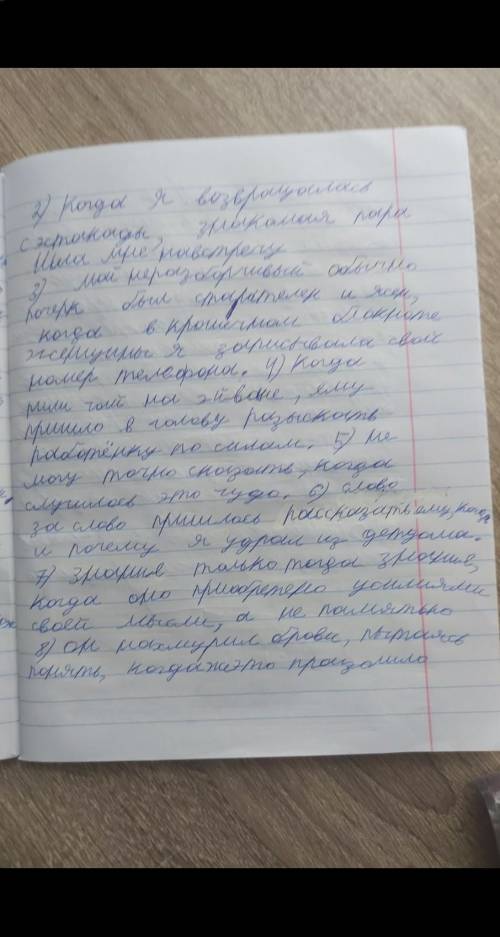 2) Когда я возвращалась
с эстакады, знакомая пара
шла мне навстречу
3) мой неразборчивый обычно
почерк был старателен и ясен,
когда в крошечном блокноте
женщины я записывала свой
номер телефона. 4) Когда
пили чай на айване, ему
пришло в голову разыскать
работёнку по силам. 5) Не
могу точно сказать, когда
случилось это чудо. 6) Слово
за слово пришлось рассказать ему, когда
и почему я удрал из детдома.
7) Знание только тогда знание,
когда оно приобретено усилиями
своей мысли, а не памятью
8) он нахмурил брови, пытаясь
понять, когда же это произошло